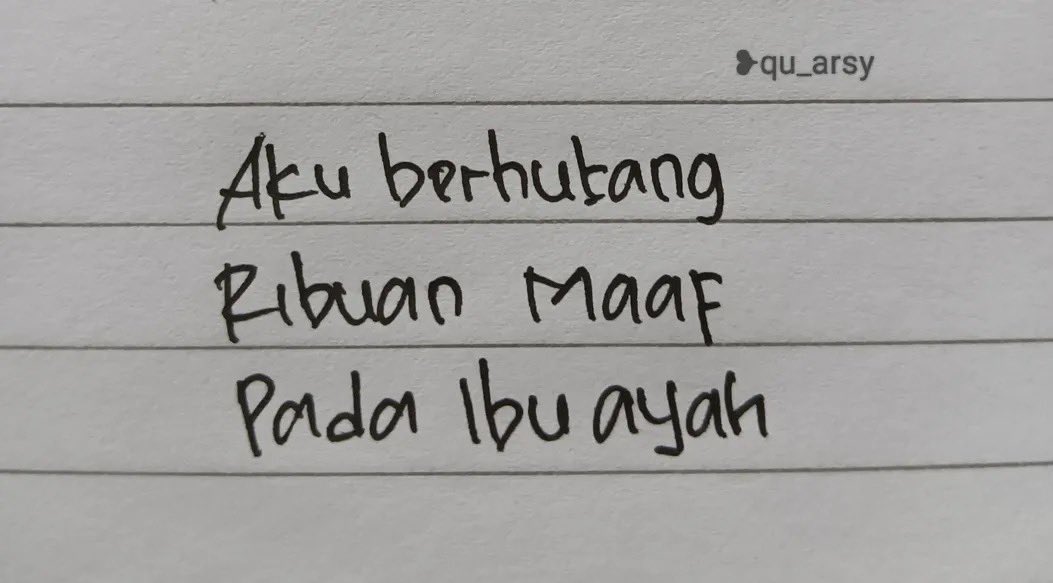 ❥qu_arsy
Aku berhutang
Ribuan Maaf
Pada Ibu ayah